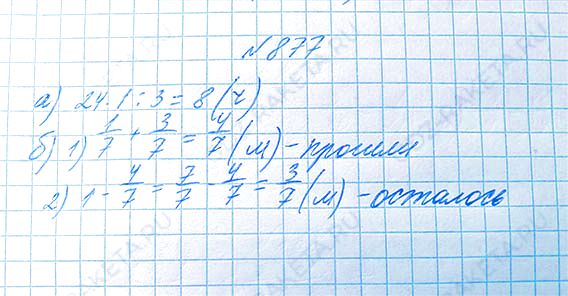 №877
а) 24·1:3=8(ч)
б) 1) 1/7+3/7=4/7(м)-прошли
2) 1-4/7=7/7-4/7=3/7(м)-осталось